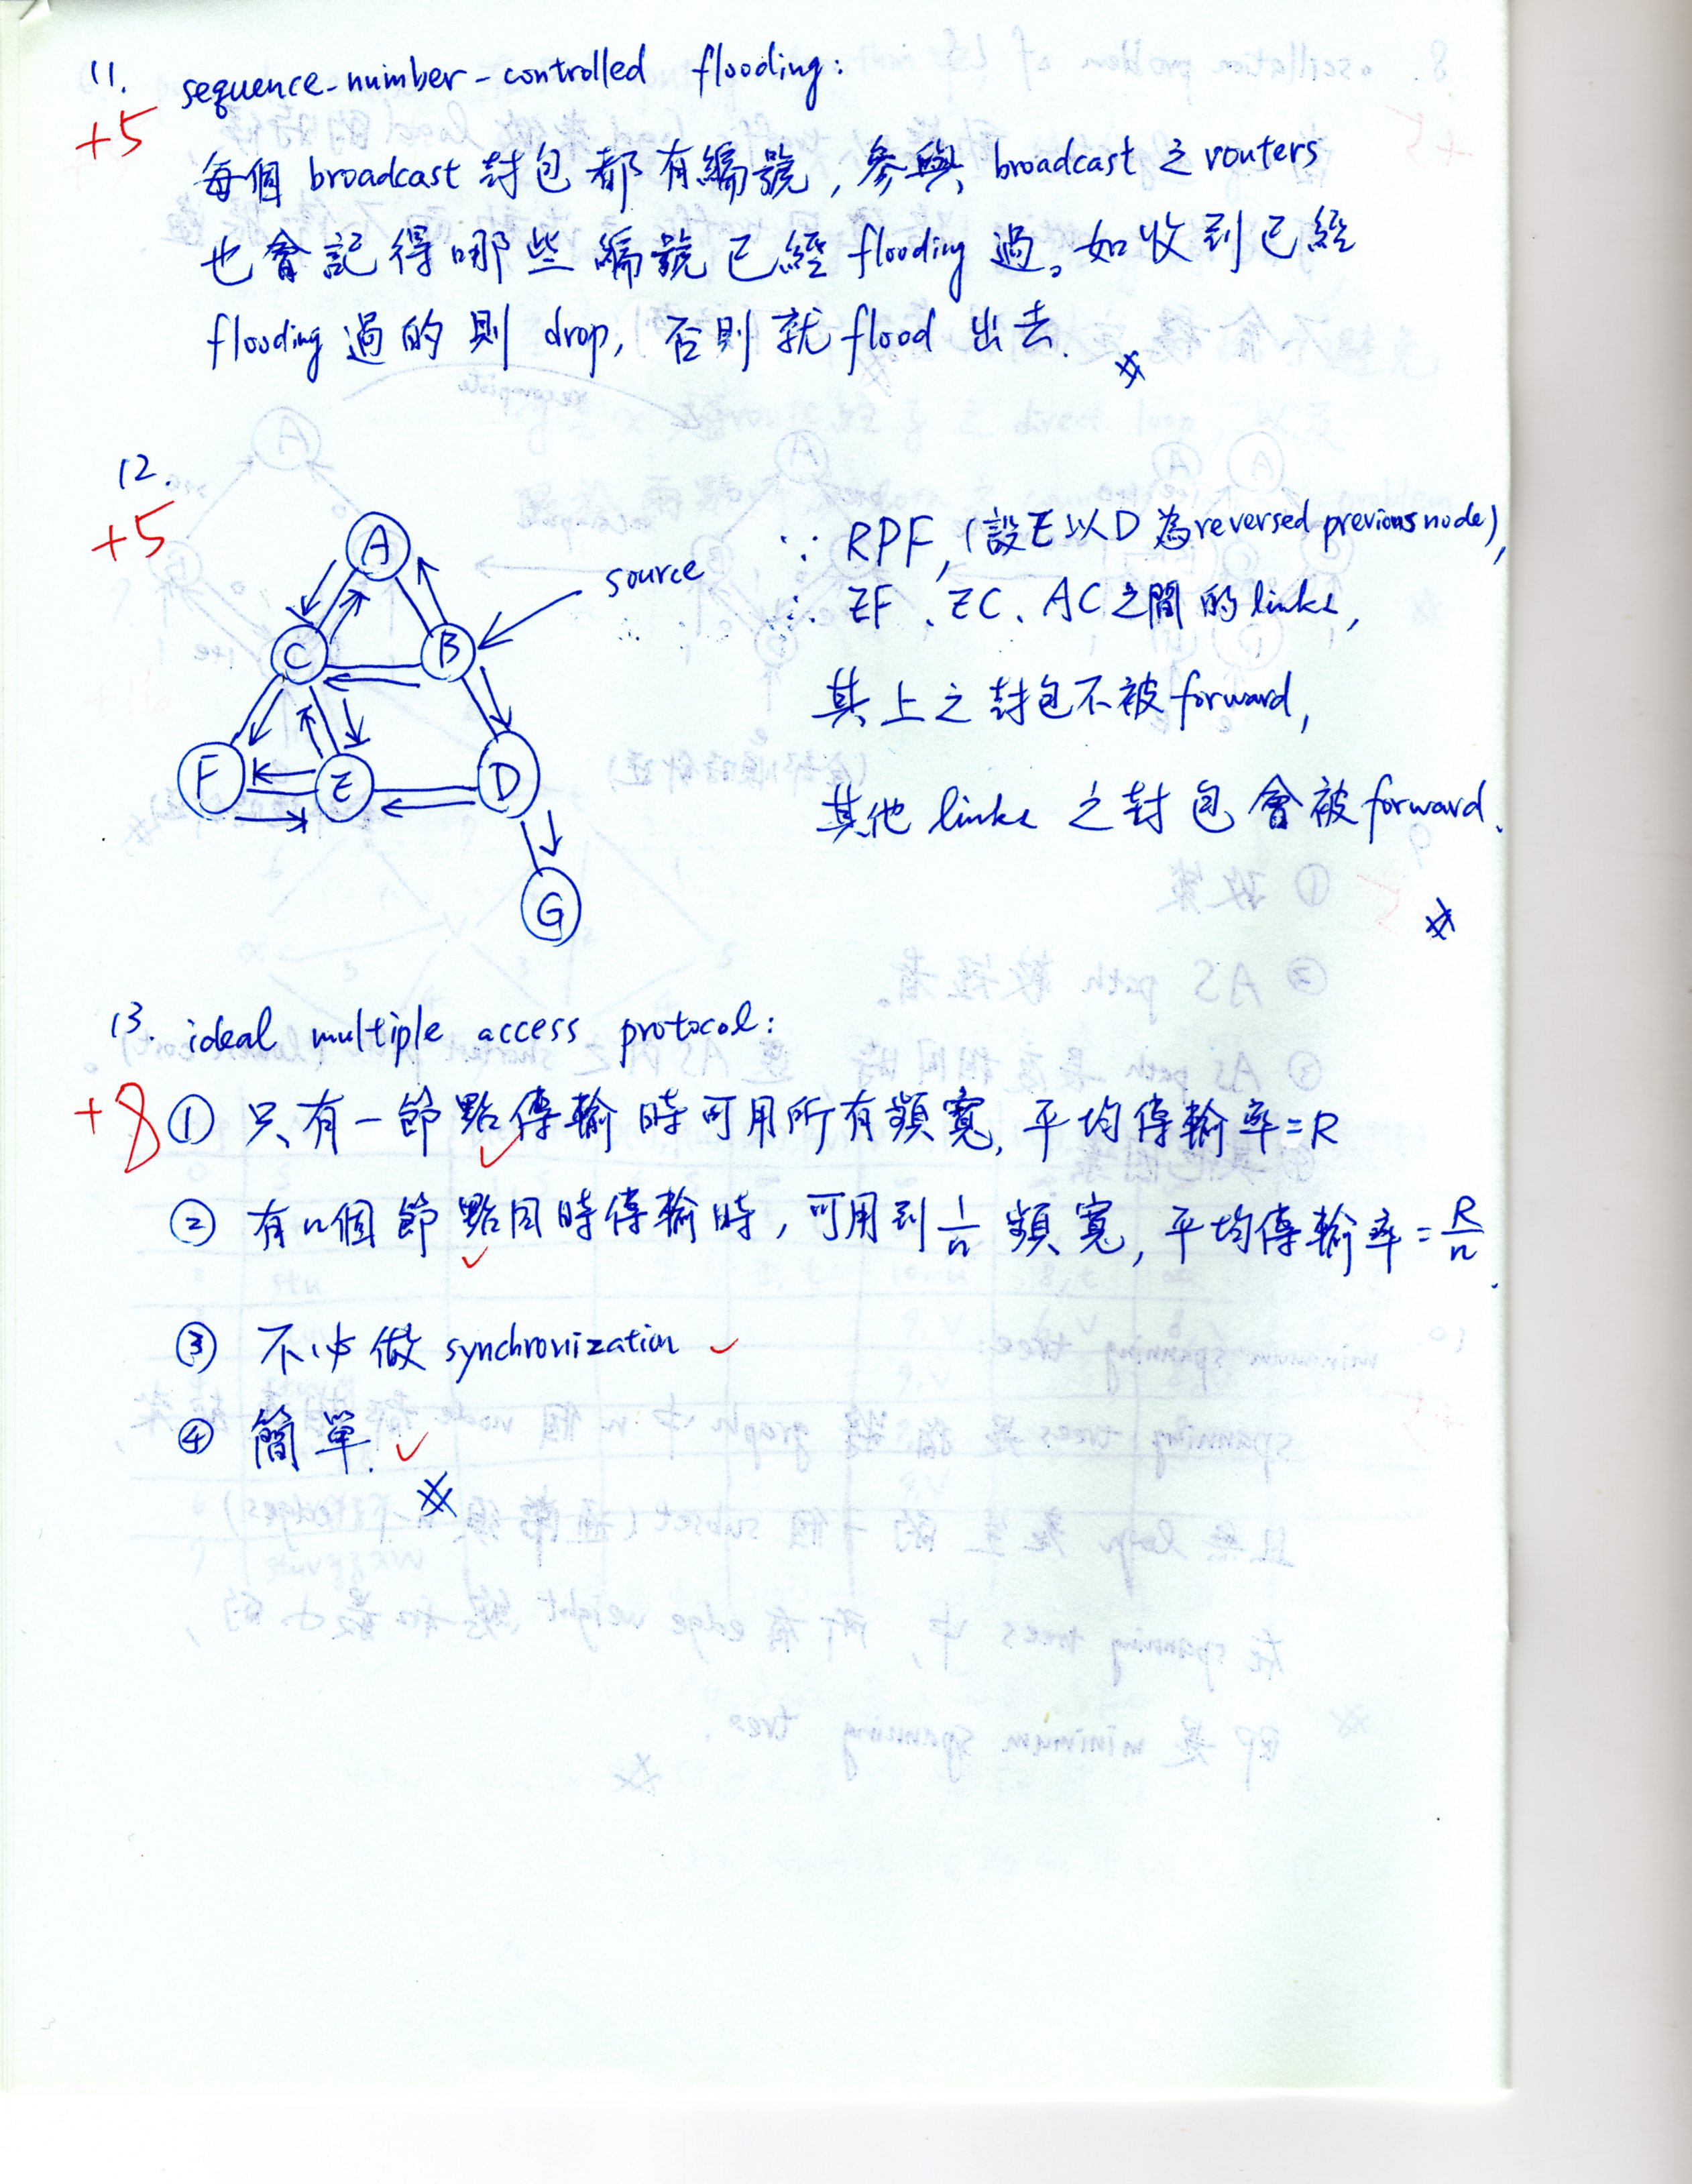 11. sequence-number-controlled flooding:
+5
每個 broadcast 封包都有編號, 參與 broadcast 之 routers
也會記得哪些編號已經 flooding 過。如收到已經
flooding 過的則 drop, 否則就 flood 出去.
12.
+5
A
source
C
B
F
E
D
G
∵ RPF, (設E以D為reversed previous node),
∴ EF、EC、AC之間的links,
其上之封包不被forward,
其他 links 之封包會被forward.
13. ideal multiple access protocol:
+8
① 只有一節點傳輸時可用所有頻寬, 平均傳輸率=R
② 有n個節點同時傳輸時, 可用到 1/n 頻寬, 平均傳輸率=R/n.
③ 不必做 synchronization
④ 簡單.